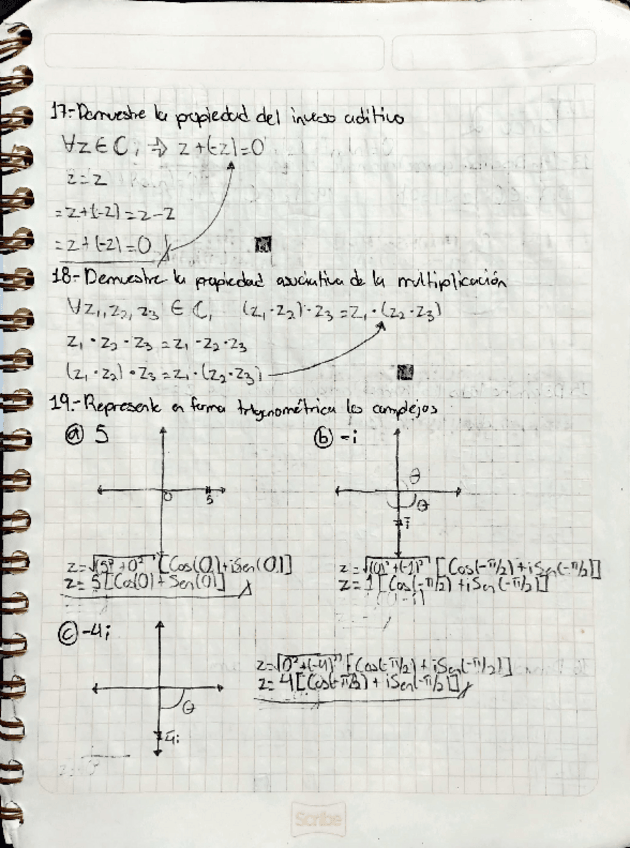 17.- Demuestre la propiedad del inverso aditivo
∀z∈ℂ, ⇒ z+(-z)=0
z=z
=z+(-z)=z-z
=z+(-z)=0
18.- Demuestre la propiedad asociativa de la multiplicación
∀z₁,z₂,z₃ ∈ ℂ, (z₁·z₂)·z₃=z₁·(z₂·z₃)
z₁·z₂·z₃=z₁·z₂·z₃
(z₁·z₂)·z₃=z₁·(z₂·z₃)
19.- Represente en forma trigonométrica los complejos
ⓐ 5
ⓑ -i
θ
0
5
θ
-i
z=√(5²+0²) [Cos(0)+iSen(0)]
z=5[Cos(0)+Sen(0)]
z=√((0)²+(-1)²) [Cos(-π/2)+iSen(-π/2)]
z=1[Cos(-π/2)+iSen(-π/2)]
ⓒ -4i
θ
-4i
z=√(0²+(-4)²) [Cos(-π/2)+iSen(-π/2)]
z=4[Cos(-π/2)+iSen(-π/2)]
Scribe